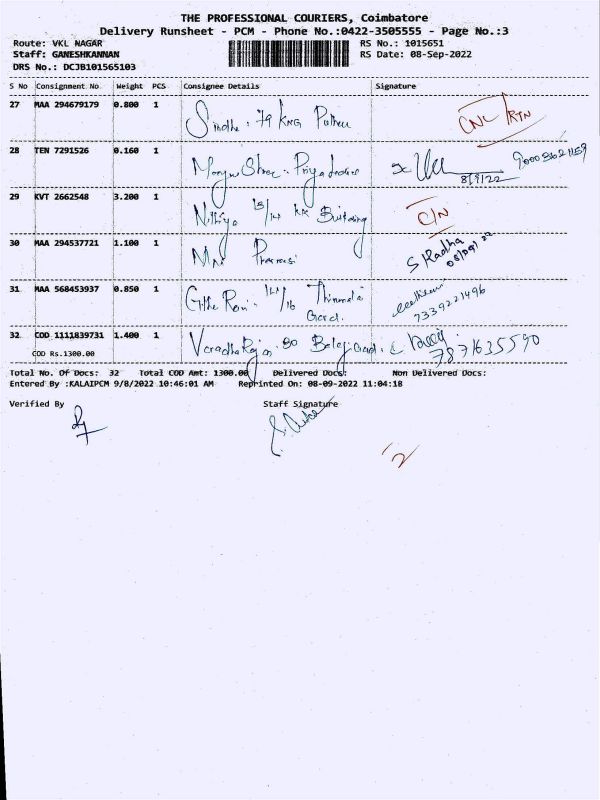 THE PROFESSIONAL COURIERS, Coimbatore
Delivery Runsheet - PCM - Phone No.:0422-3505555 - Page No.:3
Route: VKL NAGAR
RS No.: 1015651
Staff: GANESHKANNAN
RS Date: 08-Sep-2022
DRS No.: DCJB101565103
S No Consignment No Weight PCS Consignee Details Signature
27 MAA 294679179 0.800 1
79 KNG CNL/RTN
28 TEN 7291526 0.160 1
8/9/22
29 KVT 2662548 3.200 1
Nithya 13/14 KK Building C/N
30 MAA 294537721 1.100 1
S Radha
08/09/22
31 MAA 568453937 0.850 1
7339221496
32 COD 1111839731 1.400 1
7871635590
COD Rs.1300.00
Total No. Of Docs: 32 Total COD Amt: 1300.00 Delivered Docs: Non Delivered Docs:
Entered By :KALAIPCM 9/8/2022 10:46:01 AM Reprinted On: 08-09-2022 11:04:18
Verified By Staff Signature